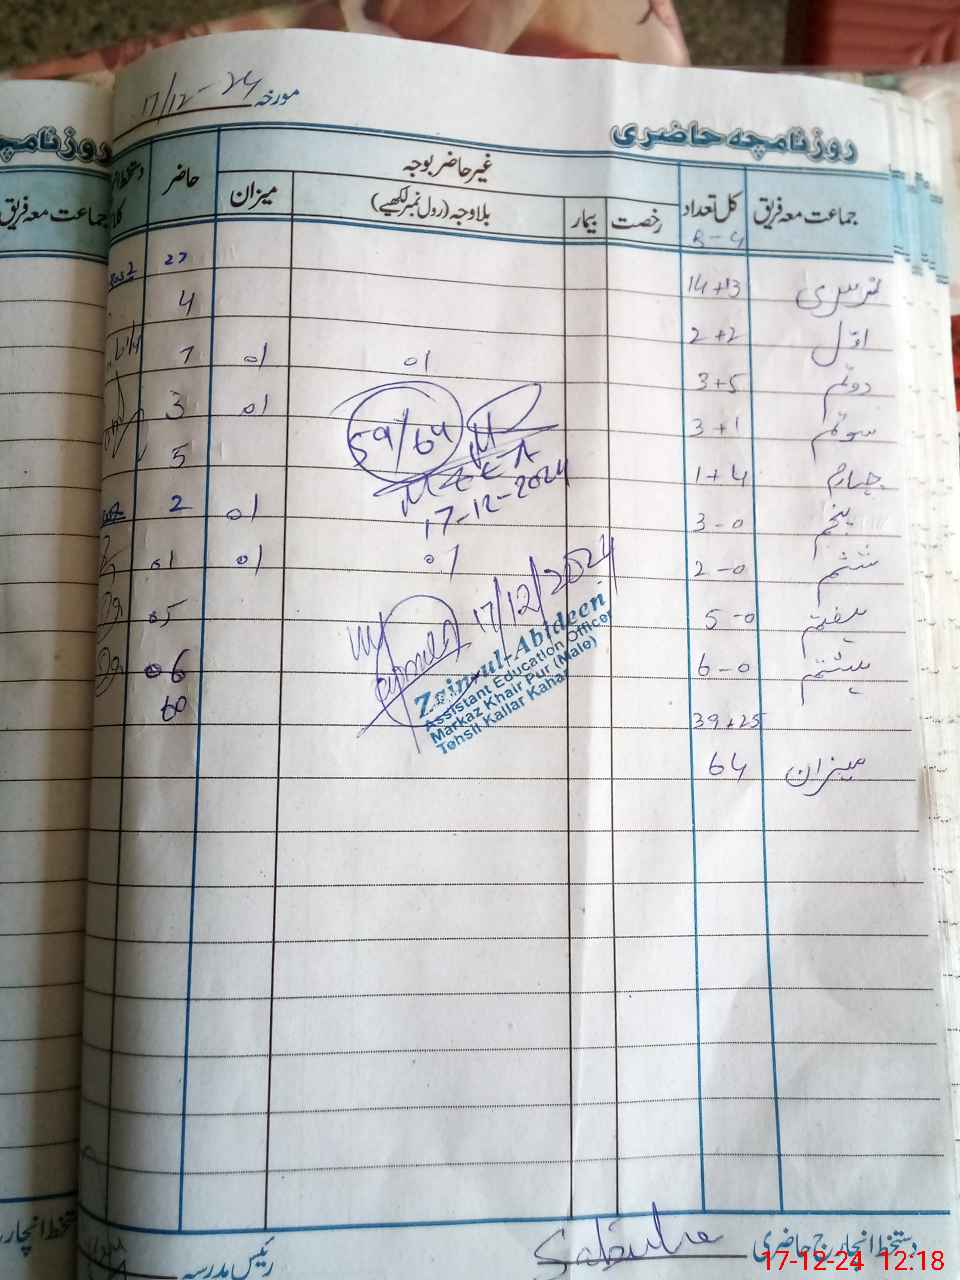 مورخہ 17/12-24
روزنامچہ حاضری
جماعت معہ فریق کل تعداد غیر حاضر بوجہ حاضر
رخصت بیمار بلاوجہ (رول نمبر لکھیے) میزان
B-G
نرسری 14+13 27
اوّل 2+2 4
دوئم 3+5 01 01 7
سوئم 3+1 01 3
چہارم 1+4 5
پنجم 3-0 01 2
ششم 2-0 01 01 01
ہفتم 5-0 05
ہشتم 6-0 06
39+25 60
میزان 64
59/64
MEEA
17-12-2024
17/12/2024
Zain-ul-Abideen
Assistant Education Officer
Markaz Khair Pur (Male)
Tehsil Kallar Kahar
دستخط انچارج حاضری رئیس مدرسہ
17-12-24 12:18
روزنامچہ
جماعت معہ فریق